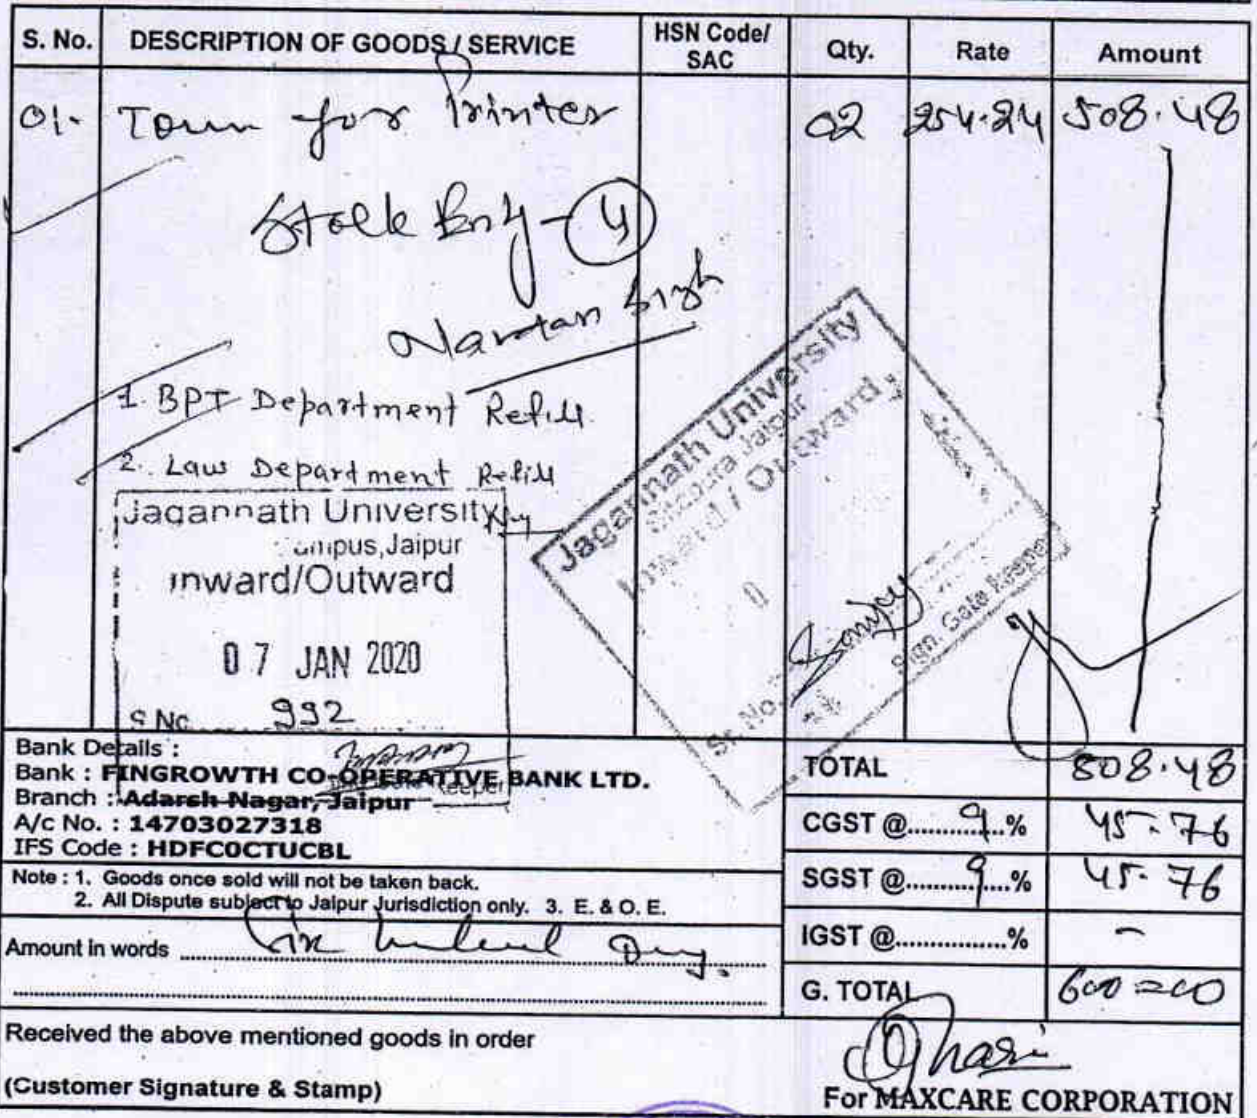 S. No. DESCRIPTION OF GOODS / SERVICE HSN Code/ SAC Qty. Rate Amount
01- for Printer 02 254.24 508.48
4
1. BPT Department Refill
2. Law Department Refill
Jagannath University
Jaipur
Inward/Outward
07 JAN 2020
S No 992
Jagannath University
Jaipur
Inward / Outward
Sr. No.
Sign. Gate Keeper
Bank Details :
Bank : FINGROWTH CO-OPERATIVE BANK LTD.
Branch : Adarsh Nagar, Jaipur
A/c No. : 14703027318
IFS Code : HDFC0CTUCBL
Note : 1. Goods once sold will not be taken back.
2. All Dispute subject to Jaipur Jurisdiction only. 3. E. & O. E.
Amount in words Six hundred
TOTAL 508.48
CGST @ 9 % 45.76
SGST @ 9 % 45.76
IGST @ % -
G. TOTAL 600=00
Received the above mentioned goods in order
(Customer Signature & Stamp)
For MAXCARE CORPORATION